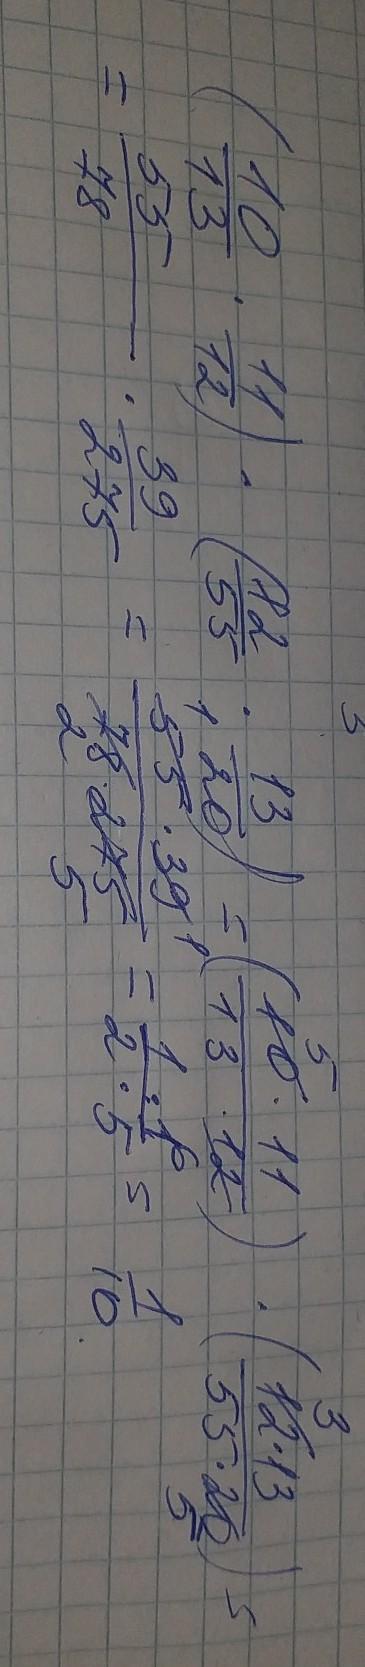 (10/13 · 11/12) · (12/55 · 13/20) = (10·11/13·12) · (12·13/55·20) =
= 55/78 · 39/275 = 55·39/78·275 = 1·1/2·5 = 1/10.